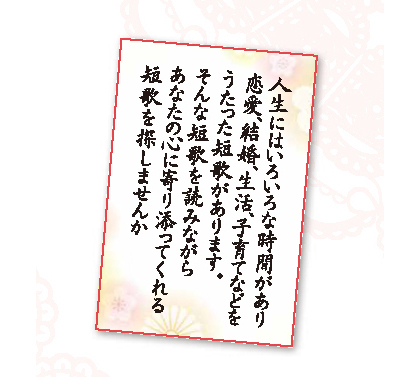 人生にはいろいろな時間があり
恋愛、結婚、生活、子育てなどを
うたった短歌があります。
そんな短歌を読みながら
あなたの心に寄り添ってくれる
短歌を探しませんか